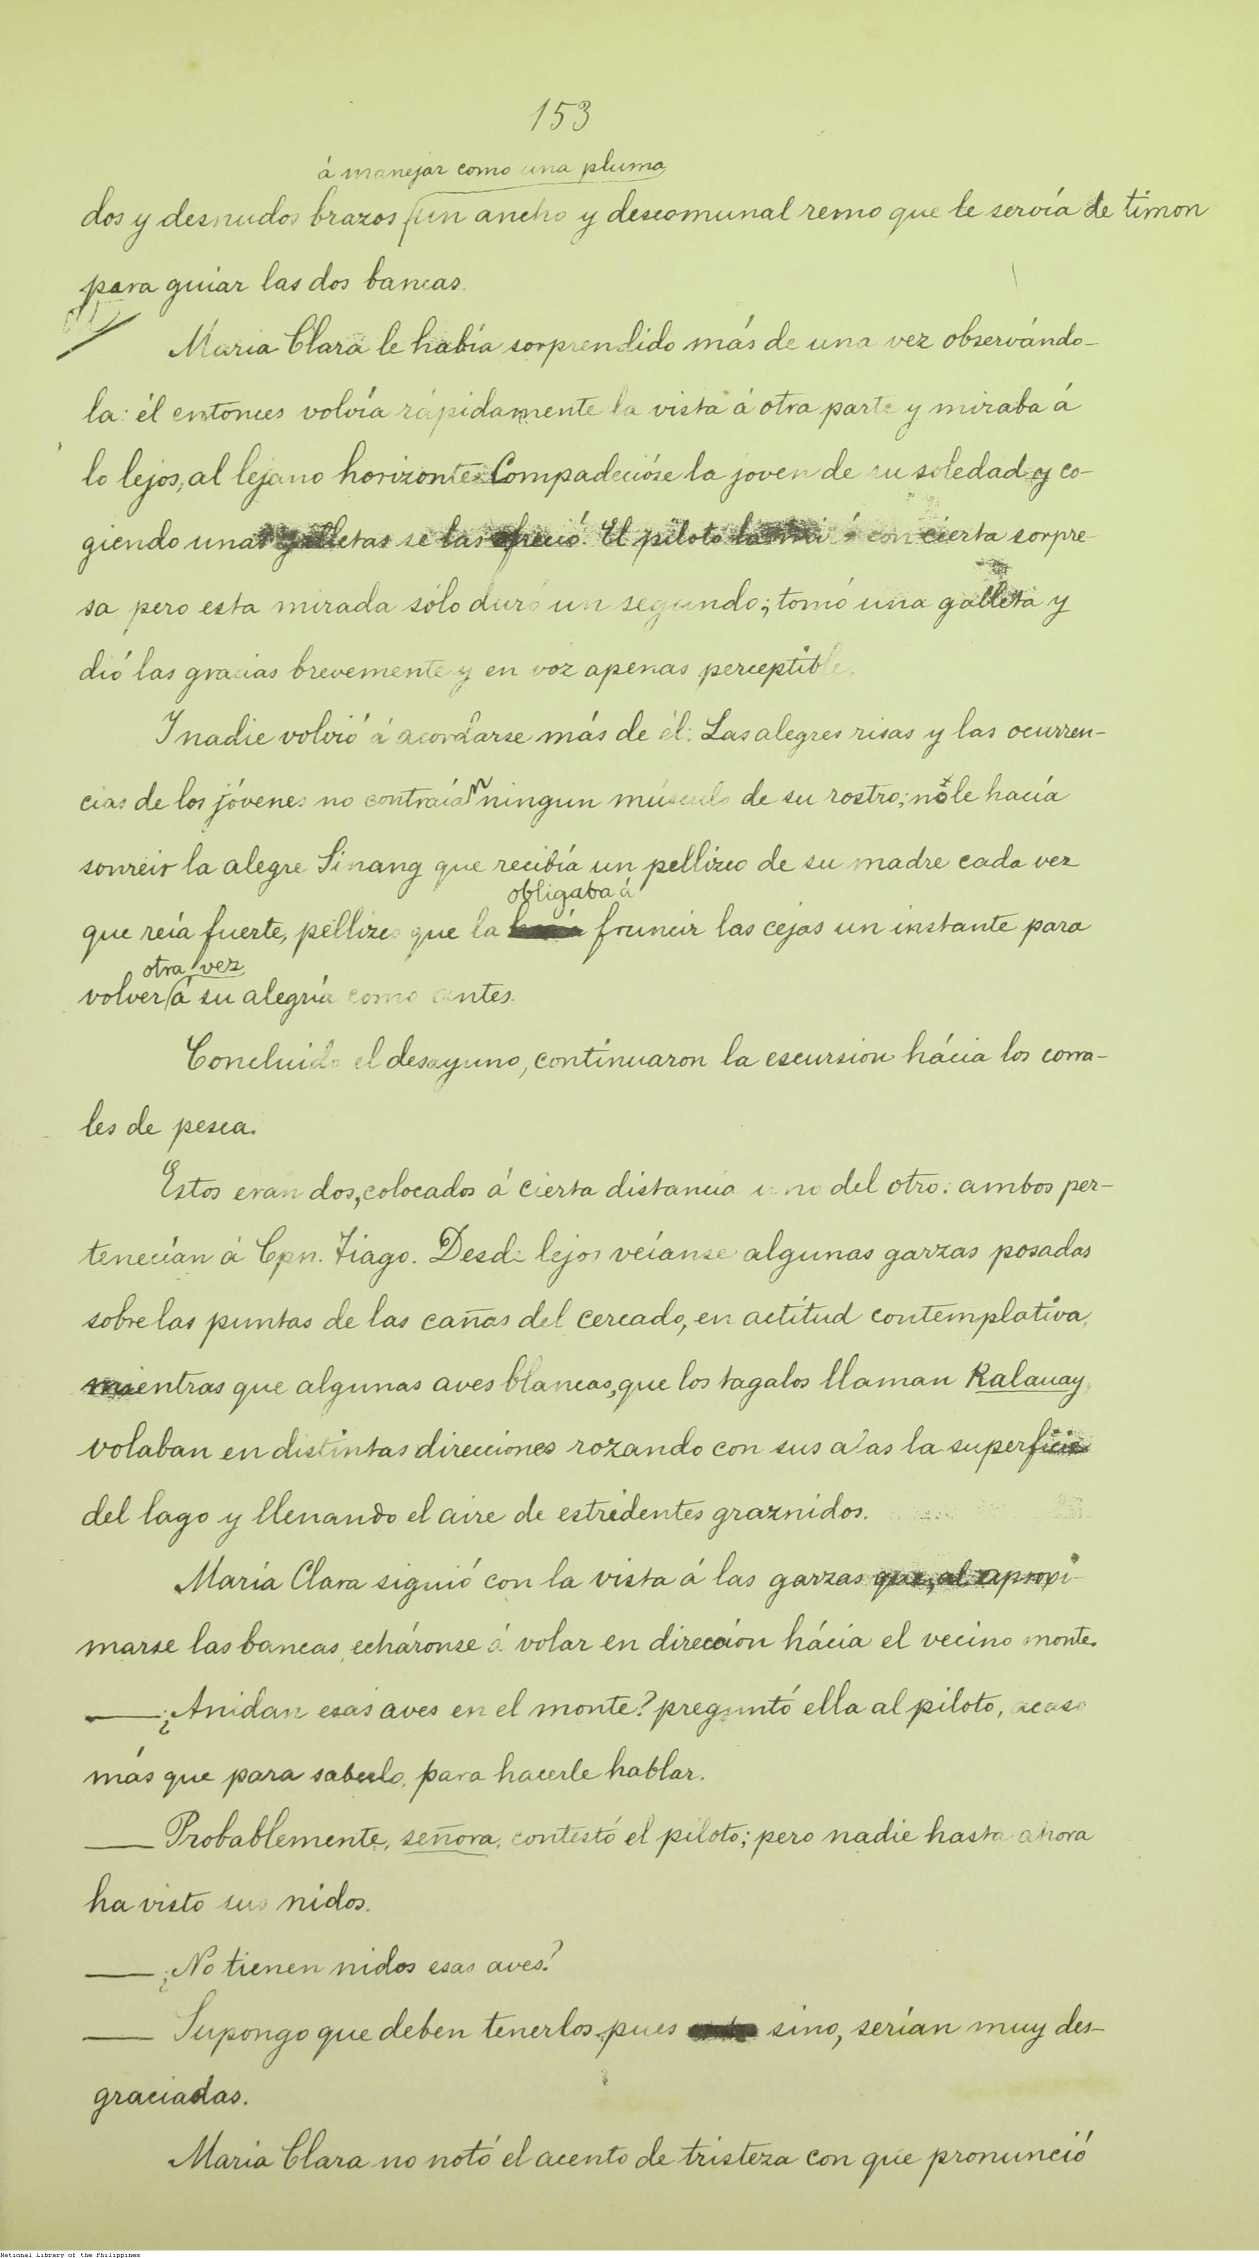 153
á manejar como una pluma
dos y desnudos brazos un ancho y descomunal remo que le servía de timon
para guiar las dos bancas.
María Clara le había sorprendido más de una vez observándo-
la: él entonces volvía rápidamente la vista á otra parte y miraba á
lo lejos, al lejano horizonte. Compadecióse la joven de su soledad y co-
giendo unas galletas se las ofreció. El piloto la miró con cierta sorpre-
sa pero esta mirada sólo duró un segundo; tomó una galleta y
dió las gracias brevemente y en voz apenas perceptible.
Y nadie volvió á acordarse más de él. Las alegres risas y las ocurren-
cias de los jóvenes no contraían ningun músculo de su rostro; no le hacía
sonreir la alegre Sinang que recibía un pellizco de su madre cada vez
obligaba á
que reía fuerte, pellizco que la fruncir las cejas un instante para
otra vez
volver á su alegría como antes.
Concluido el desayuno, continuaron la escursion hácia los corra-
les de pesca.
Estos eran dos, colocados á cierta distancia uno del otro: ambos per-
tenecían á Cpn. Tiago. Desde lejos veíanse algunas garzas posadas
sobre las puntas de las cañas del cercado, en actitud contemplativa,
mientras que algunas aves blancas, que los tagalos llaman Kalauay,
volaban en distintas direcciones rozando con sus alas la superficie
del lago y llenando el aire de estridentes graznidos.
María Clara siguió con la vista á las garzas que, al aproxi-
marse las bancas, echáronse á volar en dirección hácia el vecino monte.
—¿Anidan esas aves en el monte? preguntó ella al piloto, acaso
más que para saberlo, para hacerle hablar.
— Probablemente, señora, contestó el piloto; pero nadie hasta ahora
ha visto sus nidos.
— ¿No tienen nidos esas aves?
— Supongo que deben tenerlos, pues sino, serían muy des-
graciadas.
María Clara no notó el acento de tristeza con que pronunció
National Library of the Philippines